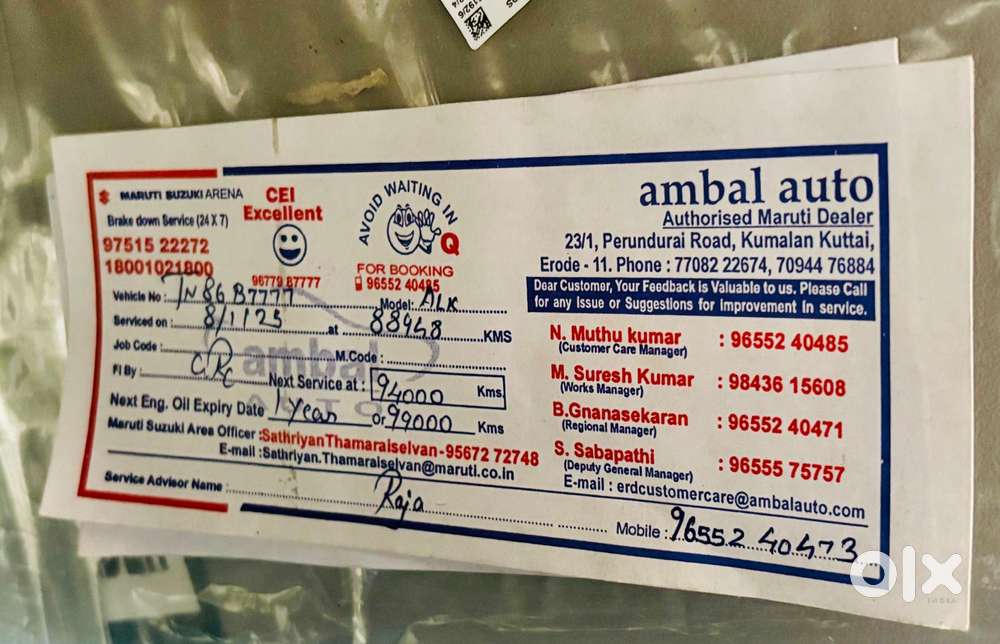 MARUTI SUZUKI ARENA
Brake down Service (24 X 7)
97515 22272
18001021800
CEI
Excellent
96779 87777
AVOID WAITING IN
Q
FOR BOOKING
96552 40485
ambal auto
Authorised Maruti Dealer
23/1, Perundurai Road, Kumalan Kuttai,
Erode - 11. Phone : 77082 22674, 70944 76884
Dear Customer, Your Feedback is Valuable to us. Please Call
for any Issue or Suggestions for Improvement in service.
Vehicle No : TN 86 B7777 Model: ALK
Serviced on : 8/1/25 at 88948 KMS
Job Code : M.Code :
ambal
AUTO
FI By : Next Service at : 94000 Kms.
Next Eng. Oil Expiry Date 1 Year or 99000 Kms
Maruti Suzuki Area Officer : Sathriyan Thamaraiselvan - 95672 72748
E-mail : Sathriyan.Thamaraiselvan@maruti.co.in
Service Advisor Name : Raja
N. Muthu kumar : 96552 40485
(Customer Care Manager)
M. Suresh Kumar : 98436 15608
(Works Manager)
B.Gnanasekaran : 96552 40471
(Regional Manager)
S. Sabapathi : 96555 75757
(Deputy General Manager)
E-mail : erdcustomercare@ambalauto.com
Mobile : 96552 40473
olx
INDIA